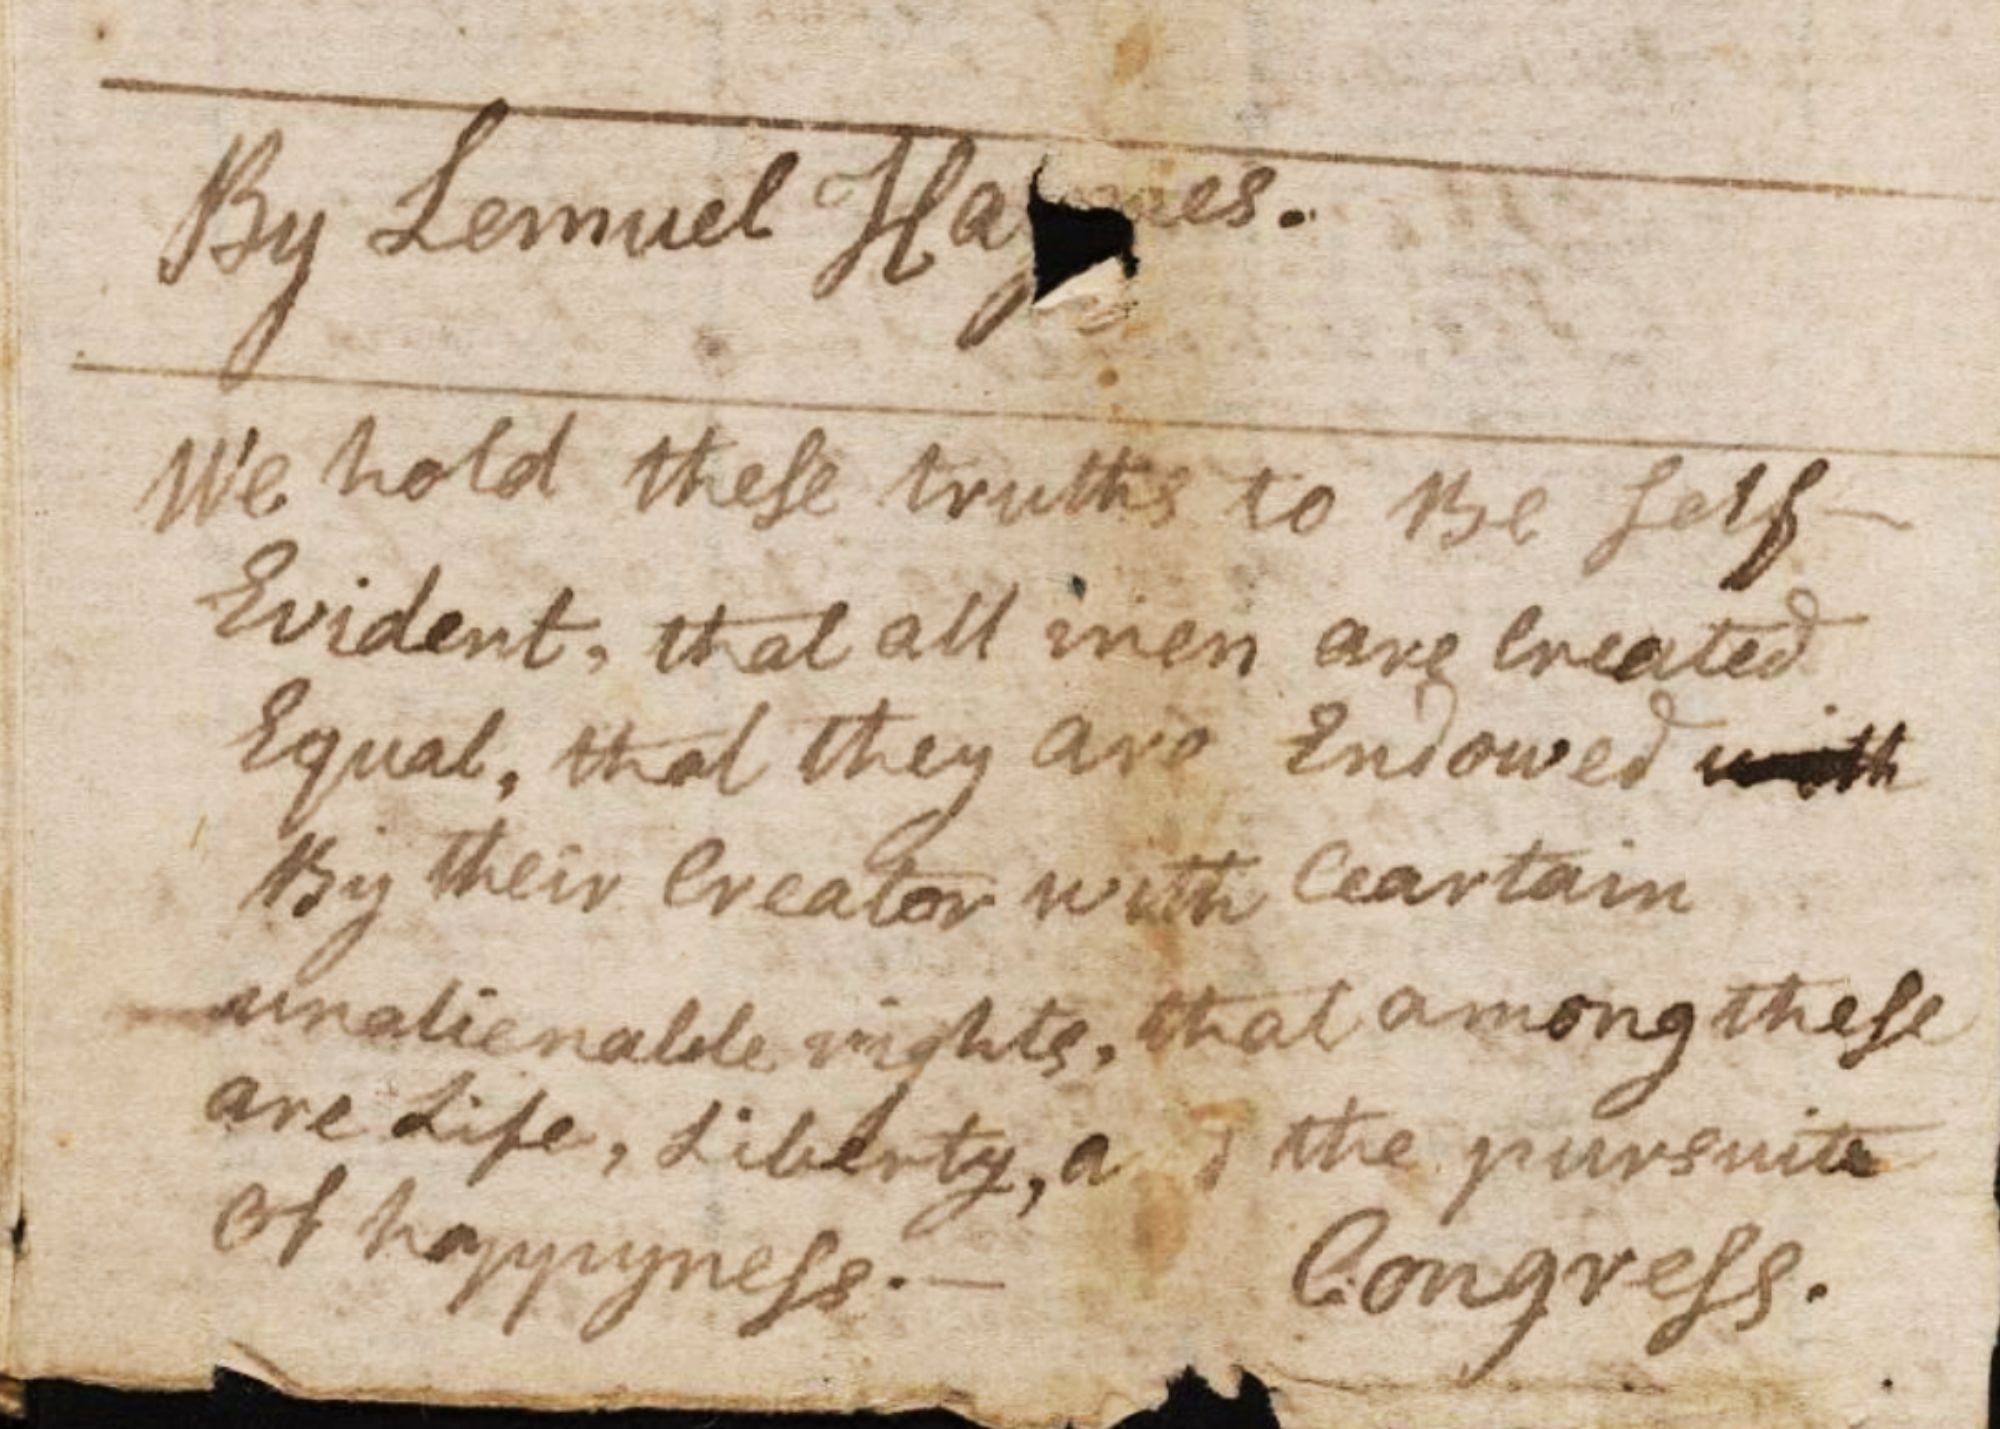 By Lemuel Haynes.
We hold these truths to Be self-
Evident, that all men are created
Equal, that they are Endowed with
By their Creator with Ceartain
unalienable rights, that among these
are Life, Liberty, and the pursuite
of happyness.— Congress.